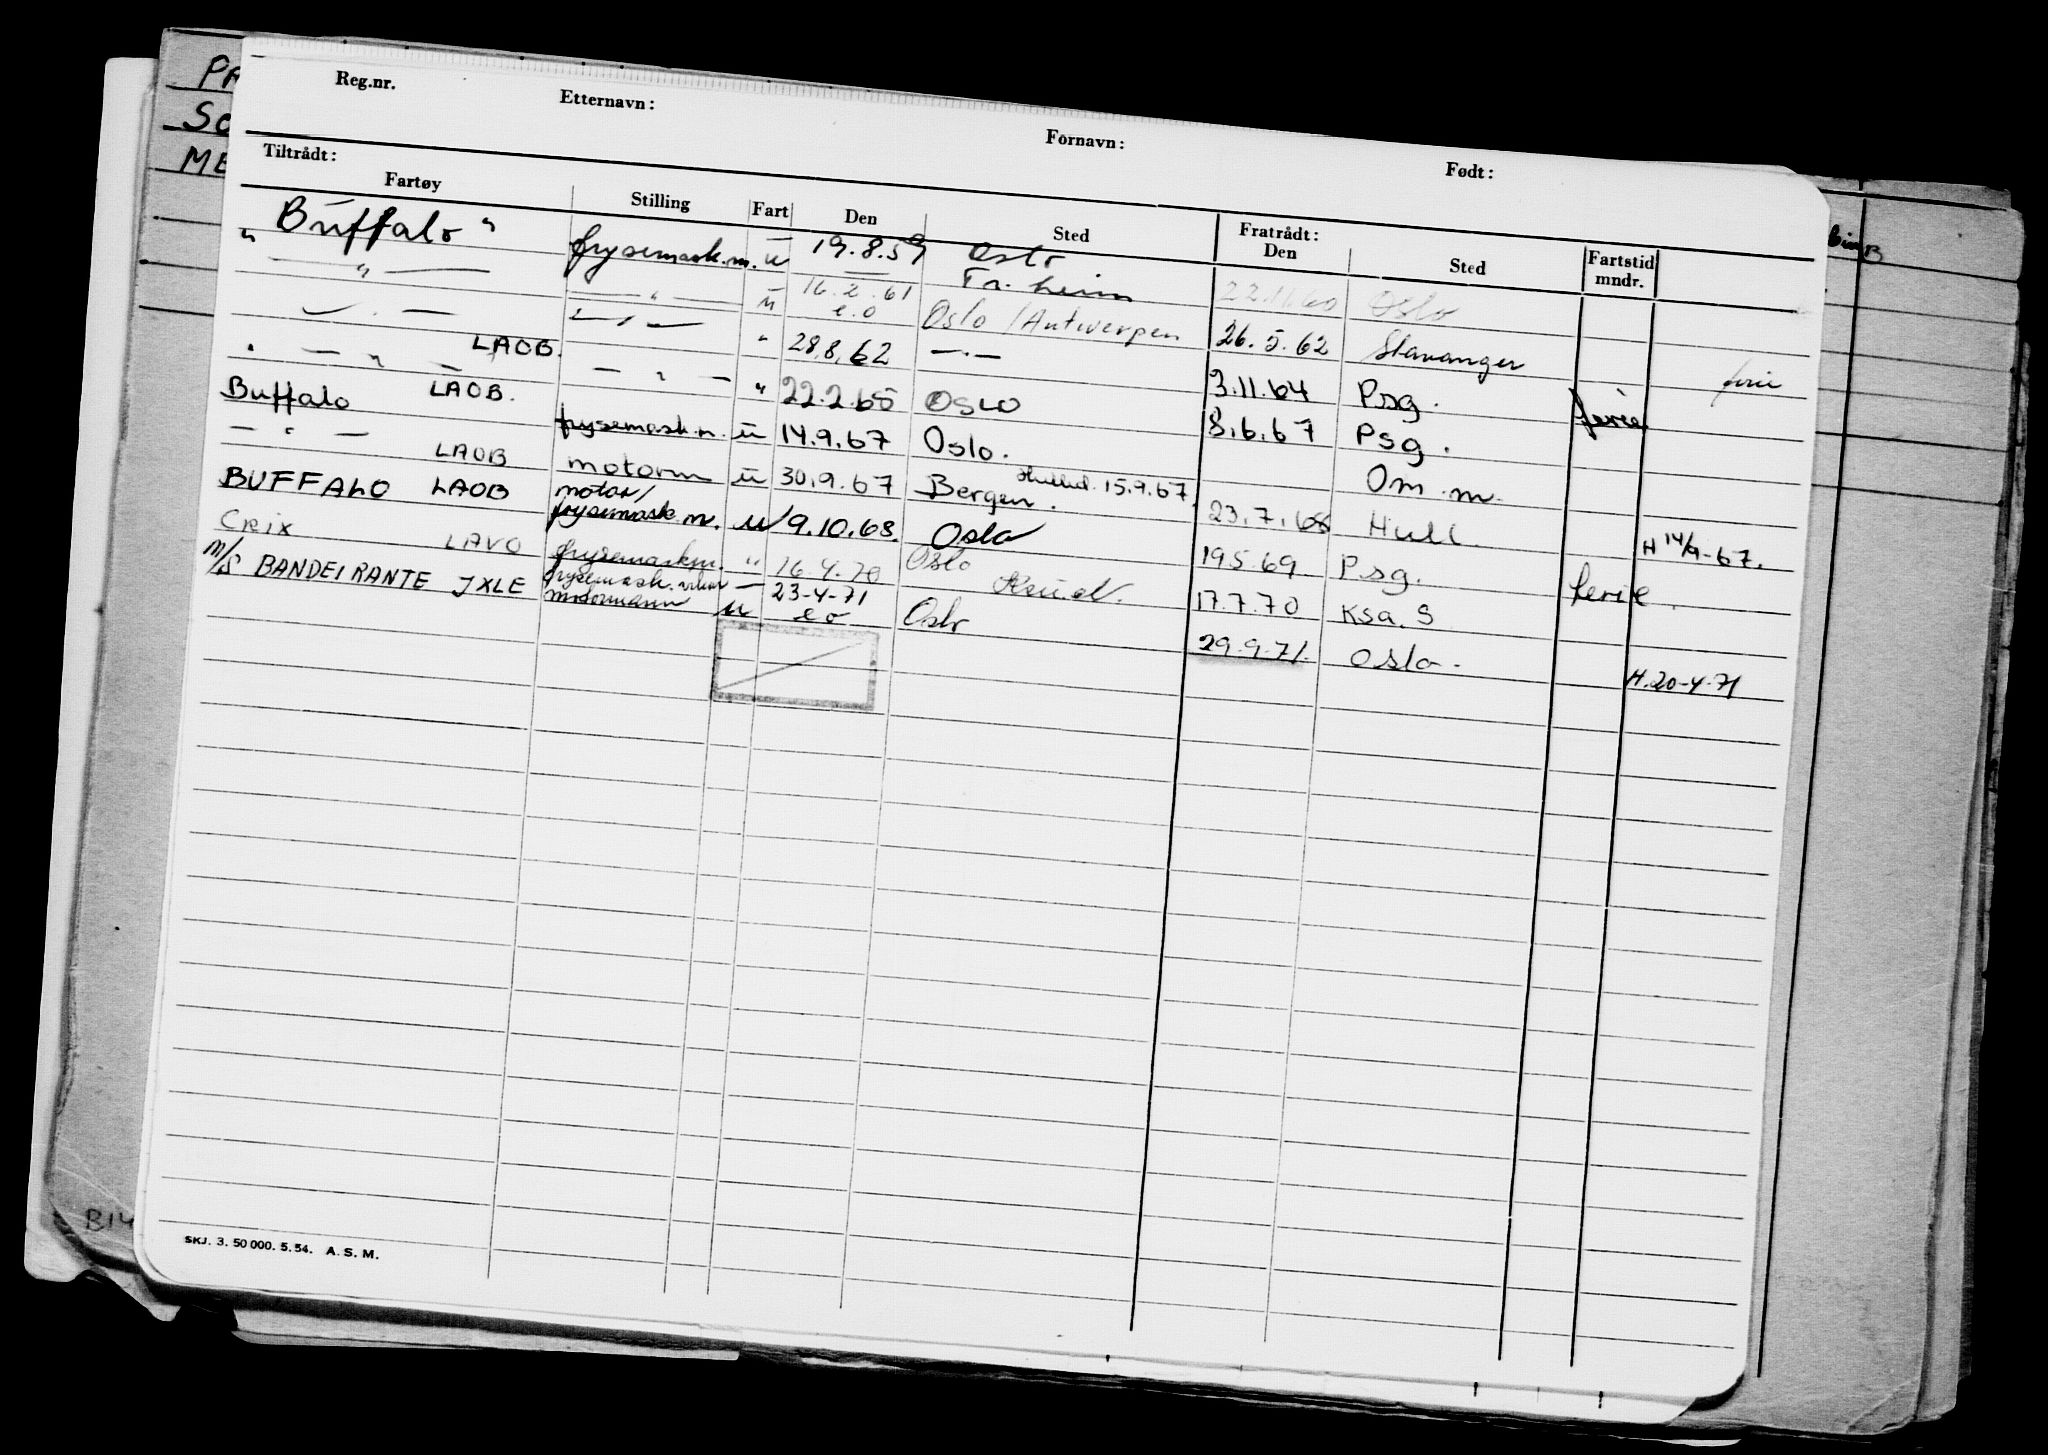 PA
SO
ME
Reg.nr. Etternavn: Fornavn: Født:
Tiltrådt: Fratrådt:
Fartøy Stilling Fart Den Sted Den Sted Fartstid mndr.
" Buffalo " frysemask.m. u 19.8.59 Oslo 22.11.60 Oslo
— " — — " — u 16.2.61 Tr.heim 26.5.62 Stavanger ferie
— . — — " — " e.o 28.8.62 Oslo / Antwerpen 3.11.64 Psg. ferie
— " — LAOB. — " — " 22.2.65 — . — 8.6.67 Psg.
Buffalo LAOB. frysemask.m. u 14.9.67 Oslo Om.m.
— " — LAOB motorm u 30.9.67 Oslo. 15.9.67. 23.7.68 Hull H 14/9-67.
BUFFALO LAOB motor/ frysemask.m. u 9.10.68. Bergen. 19.5.69 Psg. ferie.
CRIX LAVO frysemaskm. " 16.4.70 Oslo 17.7.70 Ksa. S
M/S BANDEIRANTE JXLE frysemask. motormann u 23-4-71 e o Oslo 29.9.71. Oslo. H.20-4-71
B14
SKJ. 3. 50 000. 5. 54. A. S. M.